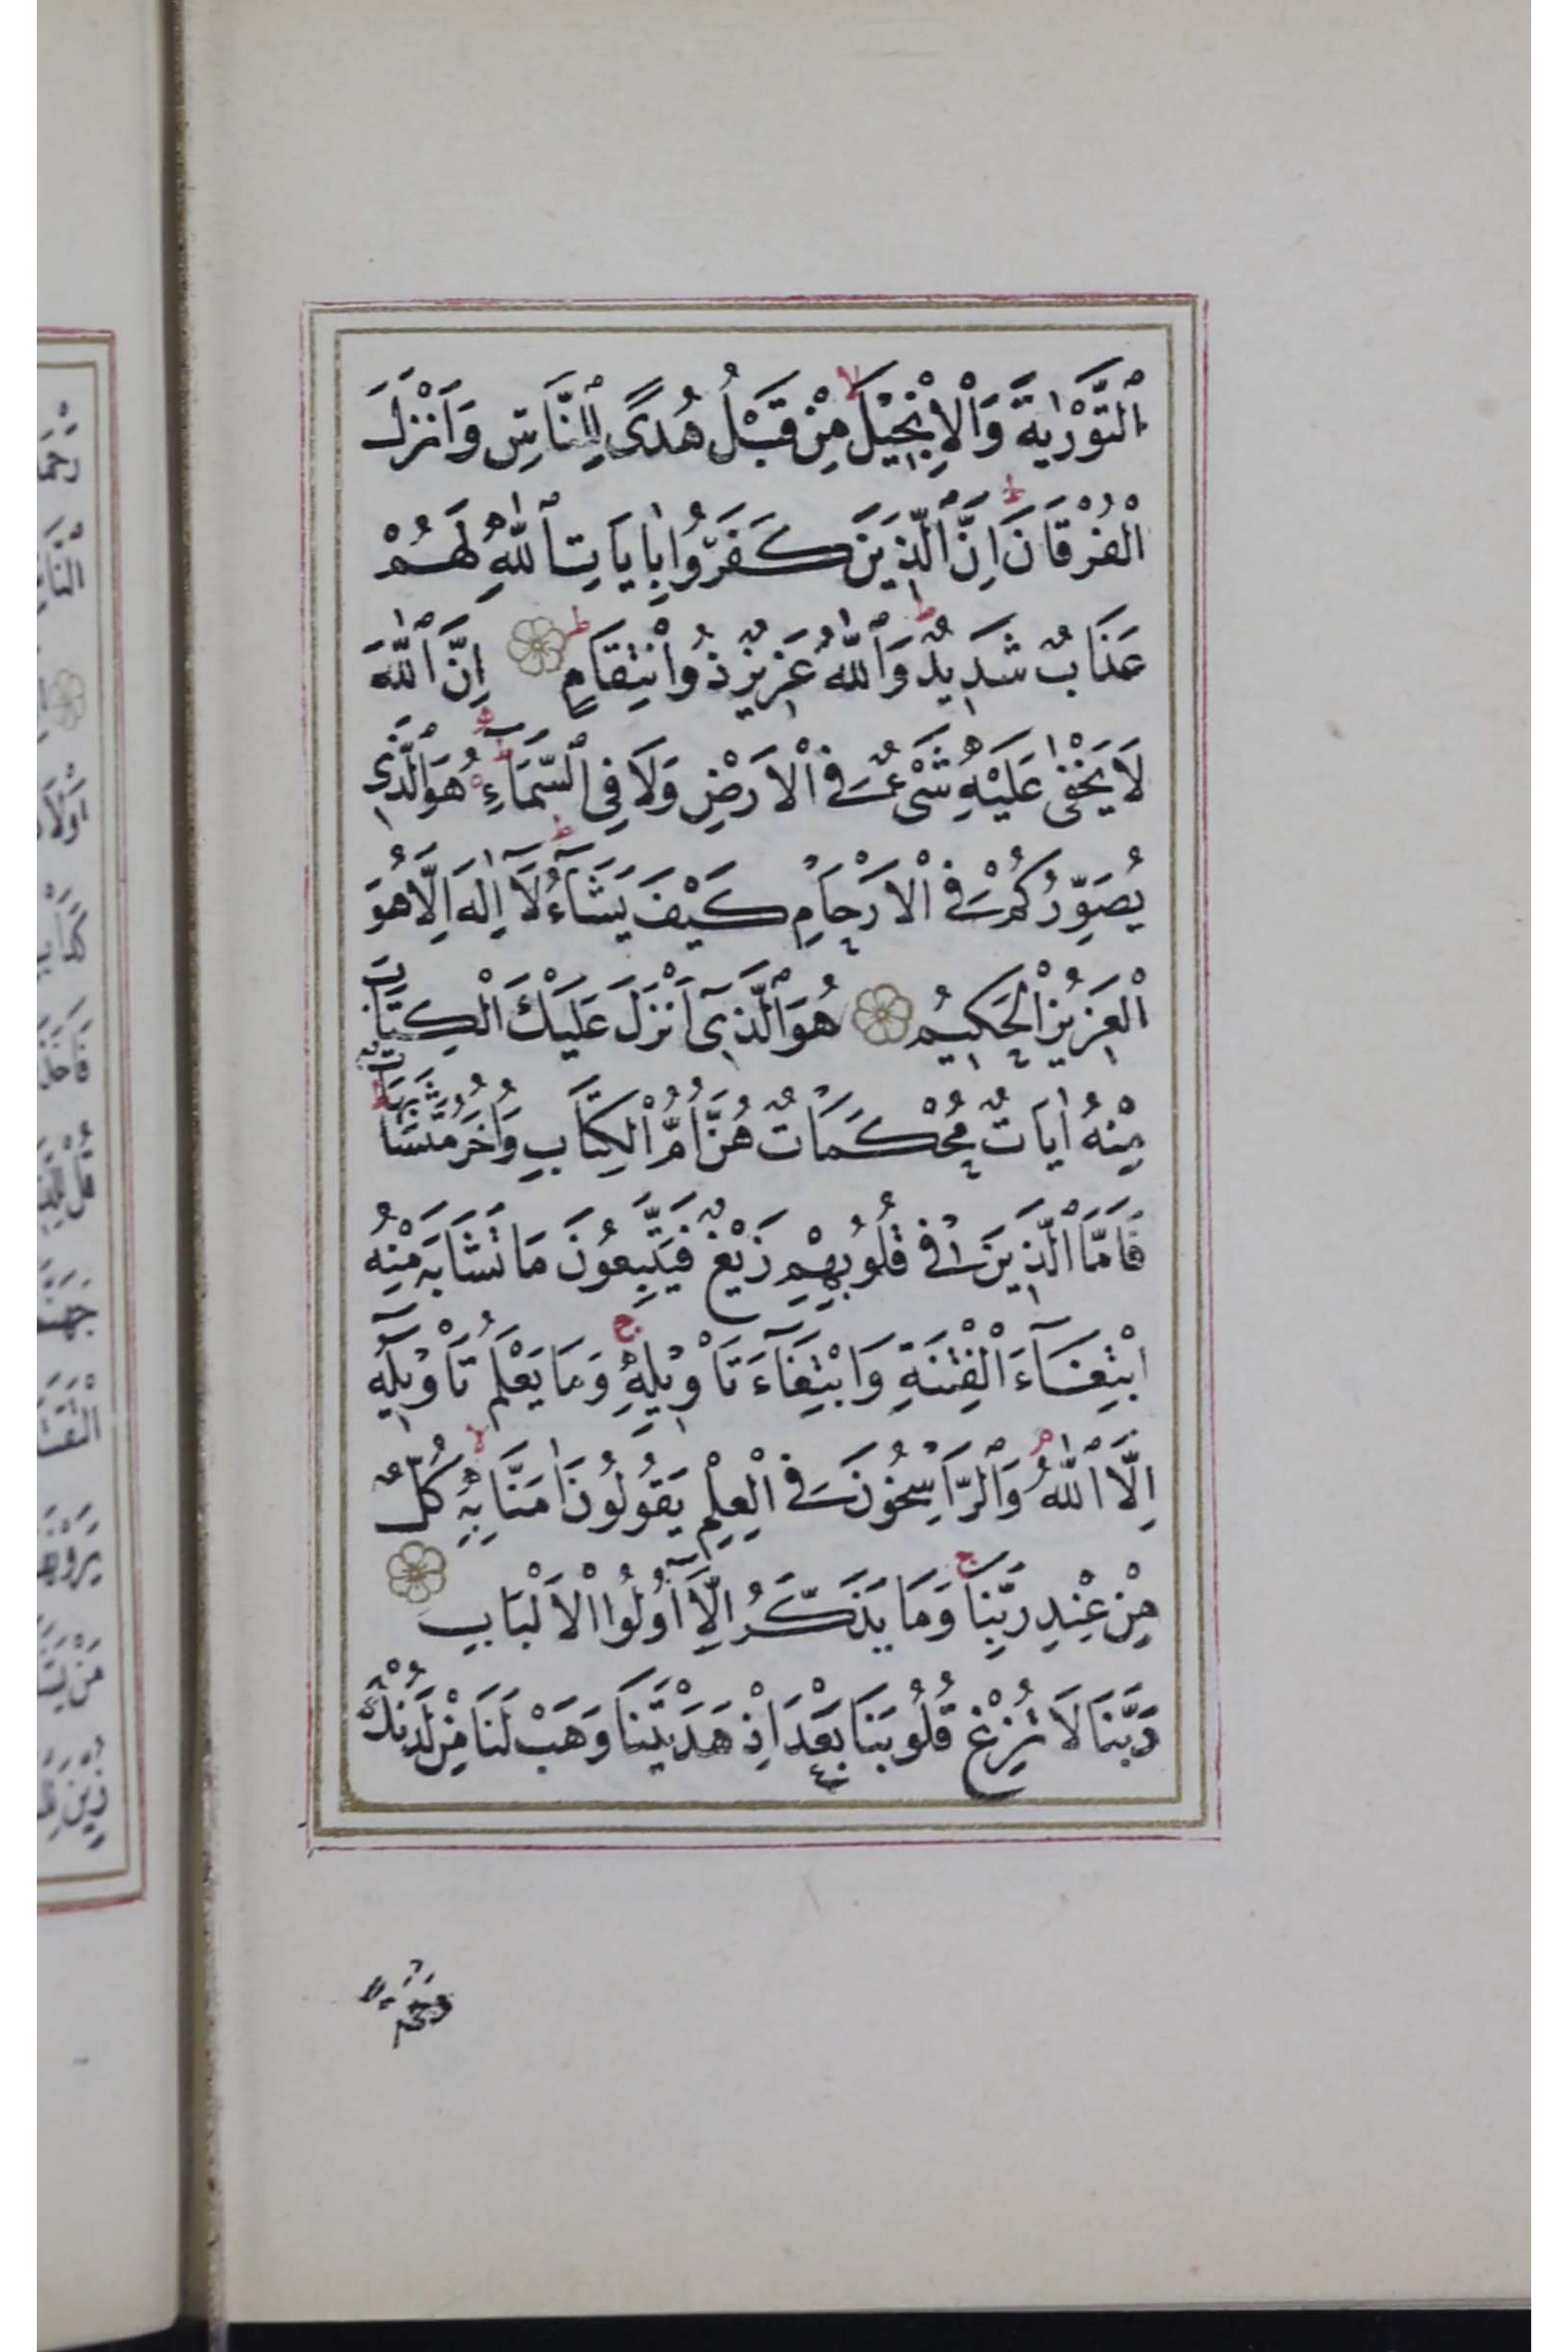 اَلتَّوْرٰيةَ وَالْاِنْجٖيلَ مِنْ قَبْلُ هُدًى لِلنَّاسِ وَاَنْزَلَ
الْفُرْقَانَ اِنَّ الَّذٖينَ كَفَرُوا بِاٰيَاتِ اللّٰهِ لَهُمْ
عَذَابٌ شَدٖيدٌ وَاللّٰهُ عَزٖيزٌ ذُو انْتِقَامٍ اِنَّ اللّٰهَ
لَا يَخْفٰى عَلَيْهِ شَىْءٌ فِى الْاَرْضِ وَلَا فِى السَّمَاءِ هُوَ الَّذٖى
يُصَوِّرُكُمْ فِى الْاَرْحَامِ كَيْفَ يَشَاءُ لَا اِلٰهَ اِلَّا هُوَ
الْعَزٖيزُ الْحَكٖيمُ هُوَ الَّذٖى اَنْزَلَ عَلَيْكَ الْكِتَابَ
مِنْهُ اٰيَاتٌ مُحْكَمَاتٌ هُنَّ اُمُّ الْكِتَابِ وَاُخَرُ مُتَشَابِهَاتٌ
فَاَمَّا الَّذٖينَ فٖى قُلُوبِهِمْ زَيْغٌ فَيَتَّبِعُونَ مَا تَشَابَهَ مِنْهُ
ابْتِغَاءَ الْفِتْنَةِ وَابْتِغَاءَ تَاْوٖيلِهٖ وَمَا يَعْلَمُ تَاْوٖيلَهٗ
اِلَّا اللّٰهُ وَالرَّاسِخُونَ فِى الْعِلْمِ يَقُولُونَ اٰمَنَّا بِهٖ كُلٌّ
مِنْ عِنْدِ رَبِّنَا وَمَا يَذَّكَّرُ اِلَّا اُولُوا الْاَلْبَابِ
رَبَّنَا لَا تُزِغْ قُلُوبَنَا بَعْدَ اِذْ هَدَيْتَنَا وَهَبْ لَنَا مِنْ لَدُنْكَ